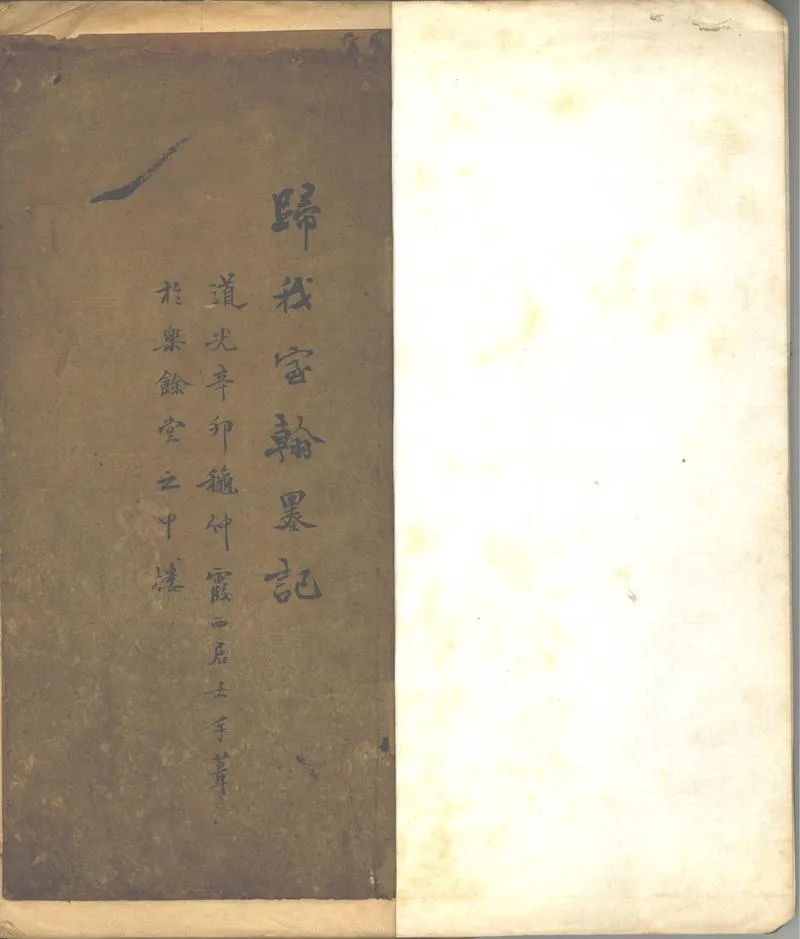 歸我室翰墨記
道光辛卯龝仲霞西居士手葺
於樂餘堂之中楼